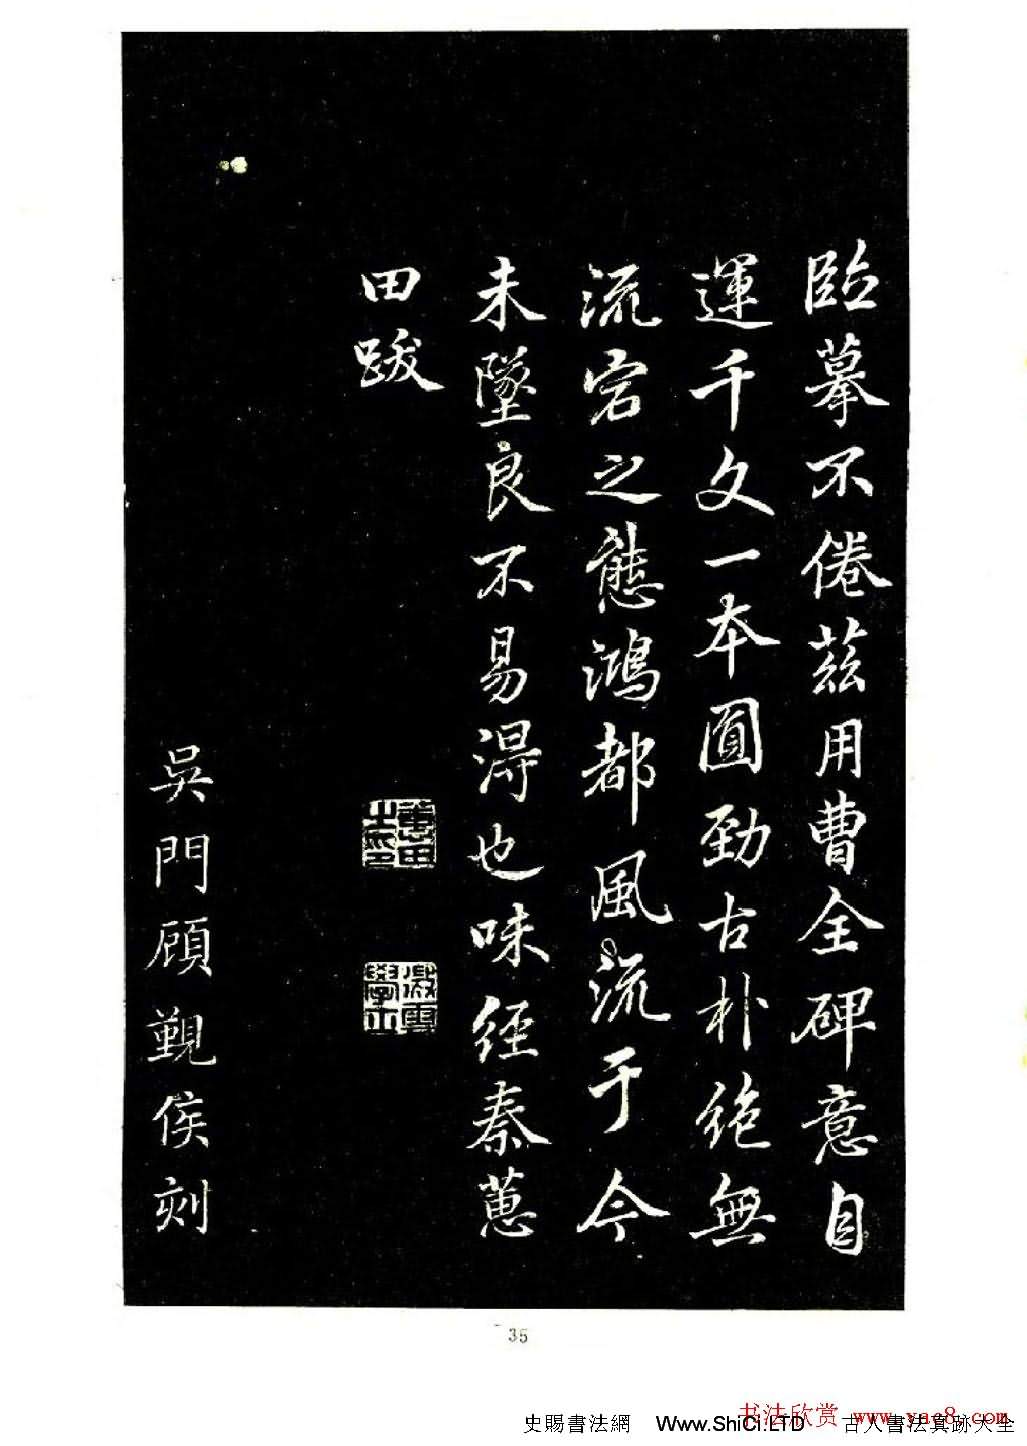 臨摹不倦茲用曹全碑意自
運千文一本圓勁古朴絶無
流宕之態鴻都風流于今
未墜良不易得也味經秦蕙
田跋
蕙田之印
吳門顧覲侯刻
35
书法欣赏 www.yac8.com
史賜書法網 Www.ShiCi.LTD 古人書法真跡大全